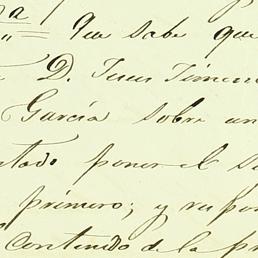 a
" = Que sabe que
D. Juan Jimen
Garcia sobre un
tado poner el S
primero; y respon
contenido de la pr